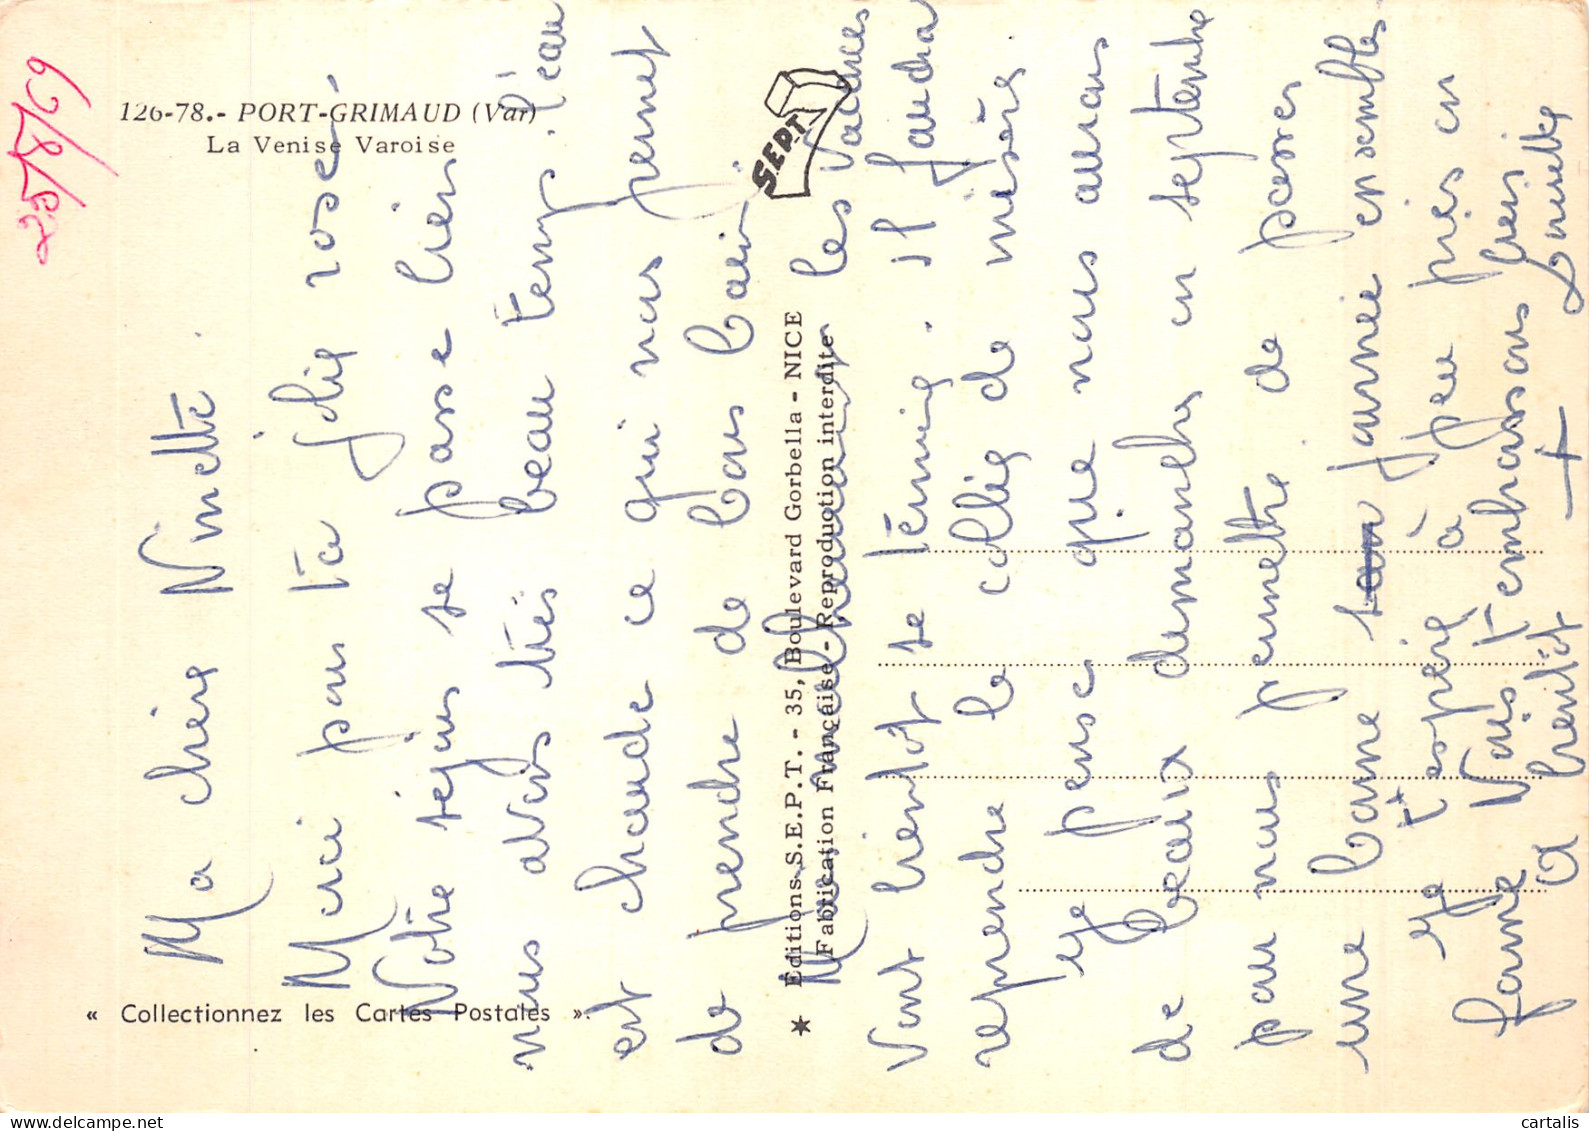 25/8/69
126-78.- PORT-GRIMAUD (Var)
La Venise Varoise
S.E.P.T.
« Collectionnez les Cartes Postales ».
★ Éditions S.E.P.T. - 35, Boulevard Gorbella - NICE
Fabrication Française - Reproduction interdite
Ma chère Ninette
Merci pour ta jolie rose.
Notre séjour se passe bien
nous avons très beau temps. l'eau
est chaude ce qui nous permet
de prendre de bons bains
Malheureusement les vacances
vont bientôt se terminer. il faudra
reprendre le collier de misère
Je pense que nous aurons
de beaux dimanches en septembre
pour nous permettre de passer
une bonne journée ensembles
Je t'espère à peu près en
forme Nous t'embrassons bien
A bientôt Ginette